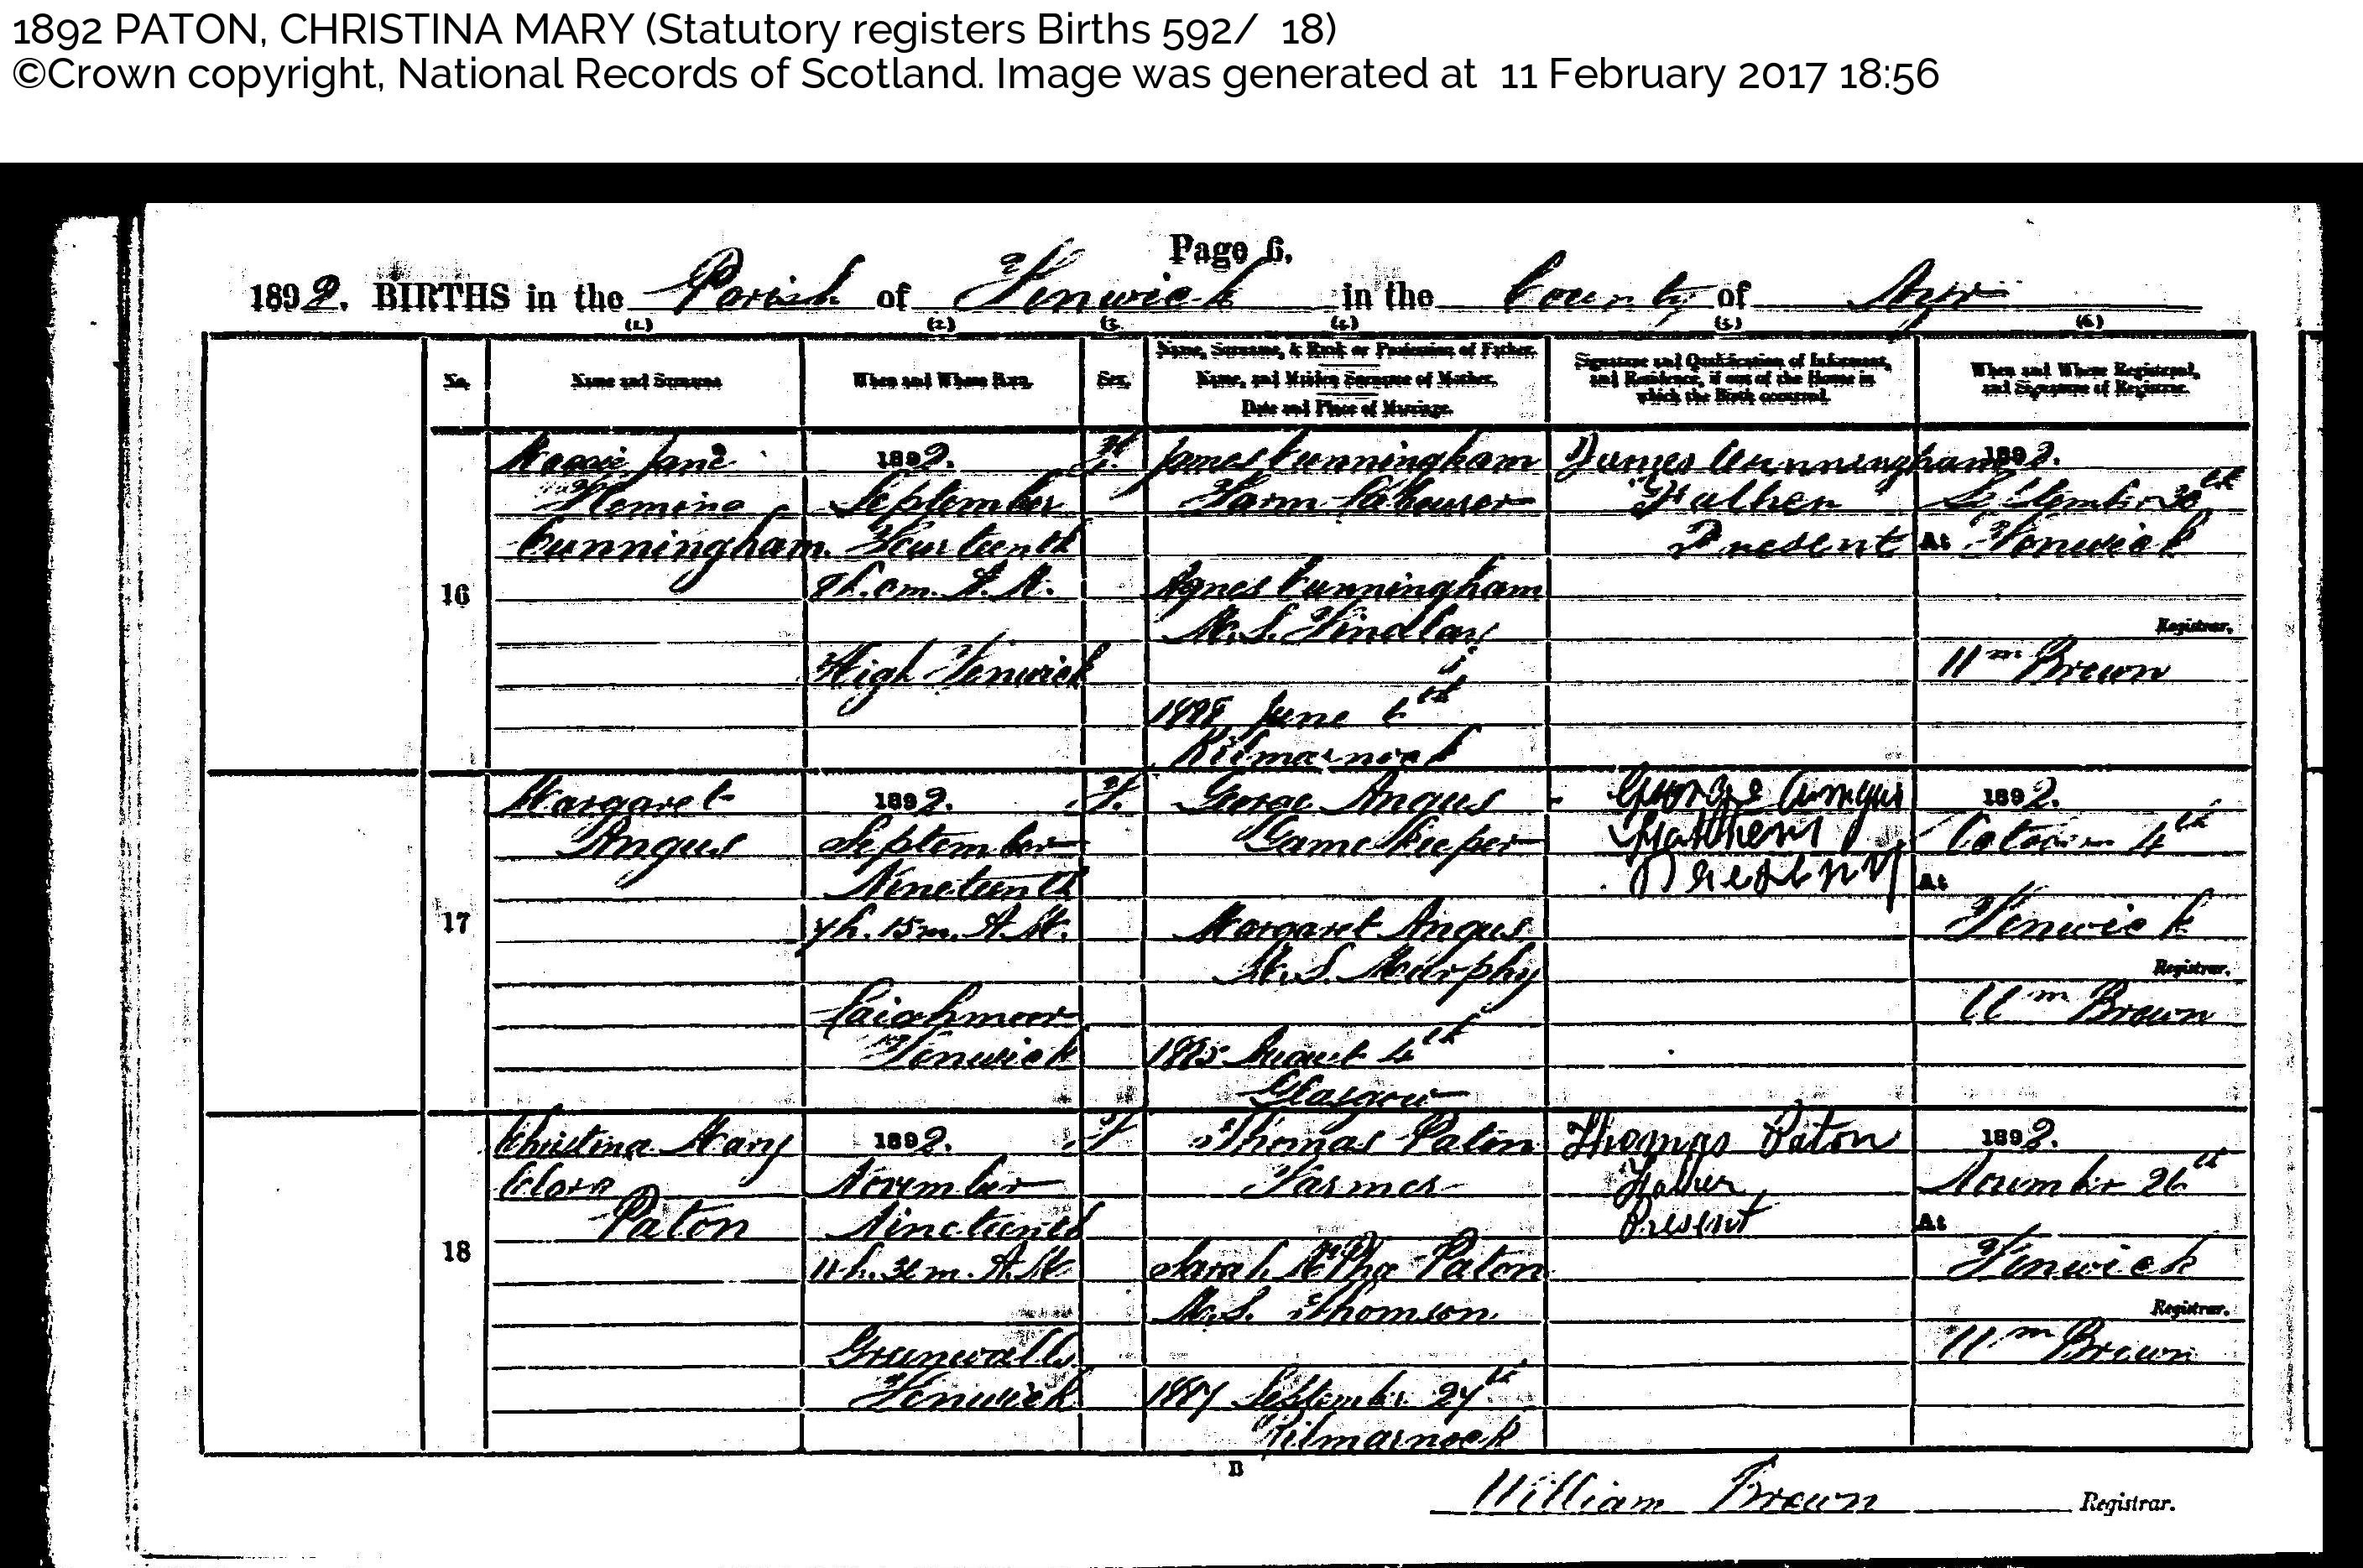 1892 PATON, CHRISTINA MARY (Statutory registers Births 592/ 18)
©Crown copyright, National Records of Scotland. Image was generated at 11 February 2017 18:56
Page 6.
1892. BIRTHS in the Parish of Fenwick in the County of Ayr
(1.) (2.) (3. (4.) (5.) (6.)
No.
Name and Surname
When and Where Born.
Sex.
Name, Surname, & Rank or Profession of Father.
Name, and Maiden Surname of Mother.
Date and Place of Marriage.
Signature and Qualification of Informant,
and Residence, if out of the House in
which the Birth occurred.
When and Where Registered,
and Signature of Registrar.
16
Maggie Jane
Fleming
Cunningham
1892.
September
Fourteenth
h. 0m. A.M.
High Fenwick
F.
James Cunningham
Farm Labourer
Agnes Cunningham
M.S. Findlay
June
Kilmarnock
James Cunningham
Father
Present
1892.
September 30th
At Fenwick
Registrar.
Wm Brown
17
Margaret
Angus
1892.
September
Nineteenth
h. 15m. A.M.
Laighmoor
Fenwick
F.
George Angus
Gamekeeper
Margaret Angus
M.S. Murphy
1885 August 4th
Glasgow
George Angus
Father
Present
1892.
October 4th
At
Fenwick
Registrar.
Wm Brown
18
Christina Mary
Clara
Paton
1892.
November
Nineteenth
11h. 30m. A.M.
Greenwalls
Fenwick
F
Thomas Paton
Farmer
Sarah Paton
M.S. Thomson
1887 September 27th
Kilmarnock
Thomas Paton
Father
Present
1892.
November 26th
At
Fenwick
Registrar.
Wm Brown
B
William Brown Registrar.